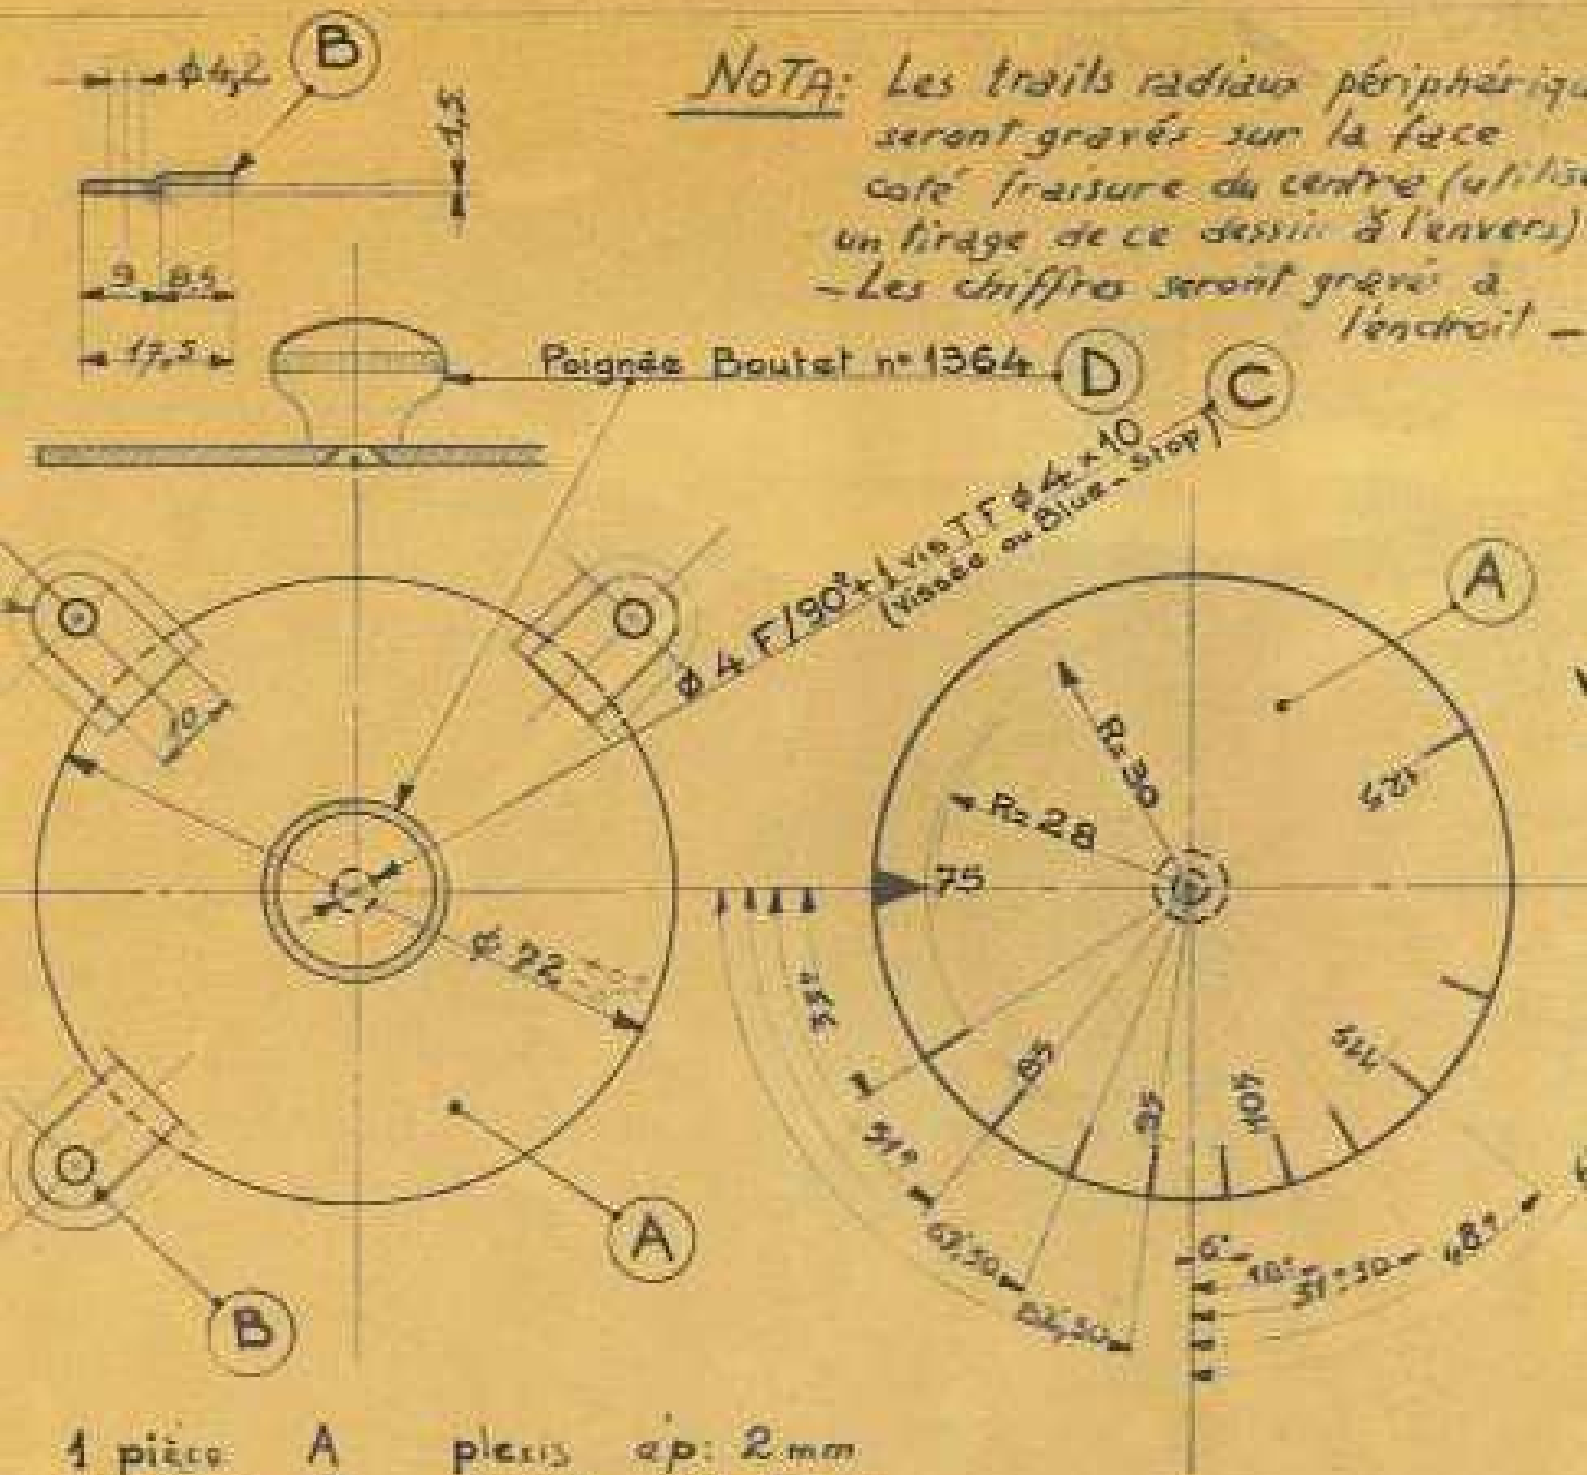 φ 4,2
B
1,5
9
8,5
17,5
NOTA: Les traits radiaux périphériqu
seront gravés sur la face
coté fraisure du centre (utilise
un tirage de ce dessin à l'envers)
- Les chiffres seront gravé à
l'endroit -
Poignée Boutet n° 1364
D
C
φ 4 F/90° + 1 vis T F φ 4 × 10
(vissée ou Blue-Stop)
A
10
R= 30
R= 28
125
75
φ 72
33°
85
95
105
115
51°
6°
18°
31°30
48°
A
B
1 pièce A plexis ép: 2 mm